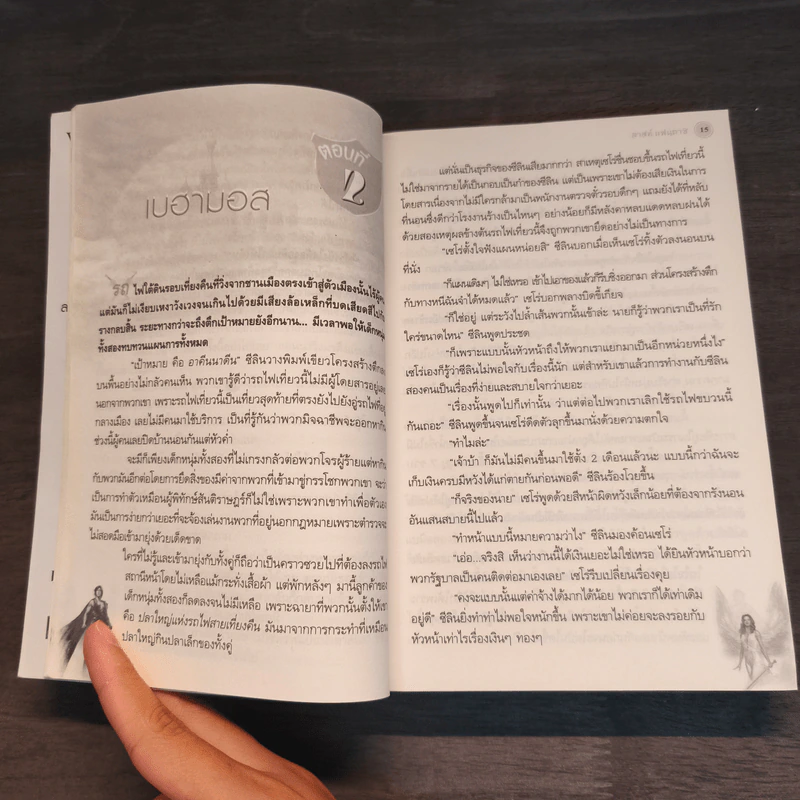 ตอนที่
๒
เบฮามอส
รถ ไฟใต้ดินรอบเที่ยงคืนที่วิ่งจากชานเมืองตรงเข้าสู่ตัวเมืองนั้นไร้ผู้
แต่มันก็ไม่เงียบเหงาวังเวงจนเกินไปด้วยมีเสียงล้อเหล็กที่บดเสียดสีไปกับ
รางกลบสิ้น ระยะทางกว่าจะถึงตึกเป้าหมายยังอีกนาน... มีเวลาพอให้เด็กหนุ่ม
ทั้งสองทบทวนแผนการทั้งหมด
“เป้าหมาย คือ อาคีนนาดีน” ซีลินวางพิมพ์เขียวโครงสร้างตึกลง
บนพื้นอย่างไม่กลัวคนเห็น พวกเขารู้ดีว่ารถไฟเที่ยวนี้ไม่มีผู้โดยสารอยู่เลย
นอกจากพวกเขา เพราะรถไฟเที่ยวนี้เป็นเที่ยวสุดท้ายที่ตรงยังไปยังอู่รถไฟที่อยู่
กลางเมือง เลยไม่มีคนมาใช้บริการ เป็นที่รู้กันว่าพวกมิจฉาชีพจะออกหากิน
ช่วงนี้ผู้คนเลยปิดบ้านนอนกันแต่หัวค่ำ
จะมีก็เพียงเด็กหนุ่มทั้งสองที่ไม่เกรงกลัวต่อพวกโจรผู้ร้ายแต่หากิน
กับพวกมันอีกต่อโดยการยึดสิ่งของมีค่าจากพวกที่เข้ามาขู่กรรโชกพวกเขา จะว่า
เป็นการทำตัวเหมือนผู้พิทักษ์สันติราษฎร์ก็ไม่ใช่เพราะพวกเขาทำเพื่อตัวเอง
มันเป็นการง่ายกว่าเยอะที่จะจ้องเล่นงานพวกที่อยู่นอกกฎหมายเพราะตำรวจจะ
ไม่สอดมือเข้ามายุ่งด้วยเด็ดขาด
ใครที่ไม่รู้และเข้ามายุ่งกับทั้งคู่ก็ถือว่าเป็นคราวซวยไปที่ต้องลงรถไฟ
สถานีหน้าโดยไม่เหลือแม้กระทั่งเสื้อผ้า แต่พักหลังๆ มานี้ลูกค้าของ
เด็กหนุ่มทั้งสองก็ลดลงจนไม่มีเหลือ เพราะฉายาที่พวกนั้นตั้งให้เขา
คือ ปลาใหญ่แห่งรถไฟสายเที่ยงคืน มันมาจากการกระทำที่เหมือน
ปลาใหญ่กินปลาเล็กของทั้งคู่
15
แต่นั่นเป็นธุรกิจของซีลินเสียมากกว่า สาเหตุเซโร่ชื่นชอบขึ้นรถไฟเที่ยวนี้
ไม่ใช่มาจากรายได้เป็นกอบเป็นกำของซีลิน แต่เป็นเพราะเขาไม่ต้องเสียเงินในการ
โดยสารเนื่องจากไม่มีใครกล้ามาเป็นพนักงานตรวจตั๋วรอบดึกๆ แถมยังได้ที่หลับ
ที่นอนซึ่งดีกว่าโรงงานร้างเป็นไหนๆ อย่างน้อยก็มีหลังคาหลบแดดหลบฝนได้
ด้วยสองเหตุผลข้างต้นรถไฟเที่ยวนี้จึงถูกพวกเขายึดอย่างไม่เป็นทางการ
“เซโร่ตั้งใจฟังแผนหน่อยสิ” ซีลินบอกเมื่อเห็นเซโร่ทิ้งตัวลงนอนบน
ที่นั่ง
“ก็แผนเดิมๆ ไม่ใช่เหรอ เข้าไปเอาของแล้วก็รีบชิ่งออกมา ส่วนโครงสร้างตึก
กับทางหนีฉันจำได้หมดแล้ว” เซโร่บอกพลางบิดขี้เกียจ
“ก็ใช่อยู่ แต่ระวังไปลำเส้นพวกนั้นเข้าล่ะ นายก็รู้ว่าพวกเราเป็นที่รัก
ใคร่ขนาดไหน” ซีลินพูดประชด
“ก็เพราะแบบนั้นหัวหน้าถึงให้พวกเราแยกมาเป็นอีกหน่วยหนึ่งไง”
เซโร่เองก็รู้ว่าซีลินไม่พอใจกับเรื่องนี้นัก แต่สำหรับเขาแล้วการทำงานกับซีลิน
สองคนเป็นเรื่องที่ง่ายและสบายใจกว่าเยอะ
“เรื่องนั้นพูดไปก็เท่านั้น ว่าแต่ต่อไปพวกเราเลิกใช้รถไฟขบวนนี้
กันเถอะ” ซีลินพูดขึ้นจนเซโร่ดีดตัวลุกขึ้นมานั่งด้วยความตกใจ
“ทำไมล่ะ”
“เจ้าบ้า ก็มันไม่มีคนขึ้นมาใช้ตั้ง 2 เดือนแล้วนะ แบบนี้กว่าฉันจะ
เก็บเงินครบมีหวังได้แก่ตายกันก่อนพอดี” ซีลินร้องโวยขึ้น
“ก็จริงของนาย” เซโร่พูดด้วยสีหน้าผิดหวังเล็กน้อยที่ต้องจากรังนอน
อันแสนสบายนี้ไปแล้ว
“ทำหน้าแบบนี้หมายความว่าไง” ซีลินมองค้อนเซโร่
“เอ่อ...จริงสิ เห็นว่างานนี้ได้เงินเยอะไม่ใช่เหรอ ได้ยินหัวหน้าบอกว่า
พวกรัฐบาลเป็นคนติดต่อมาเองเลย” เซโร่รีบเปลี่ยนเรื่องคุย
“คงจะแบบนั้นแต่ค่าจ้างได้มากได้น้อย พวกเราก็ได้เท่าเดิม
อยู่ดี” ซีลินยิ่งทำท่าไม่พอใจหนักขึ้น เพราะเขาไม่ค่อยจะลงรอยกับ
หัวหน้าเท่าไรเรื่องเงินๆ ทองๆ